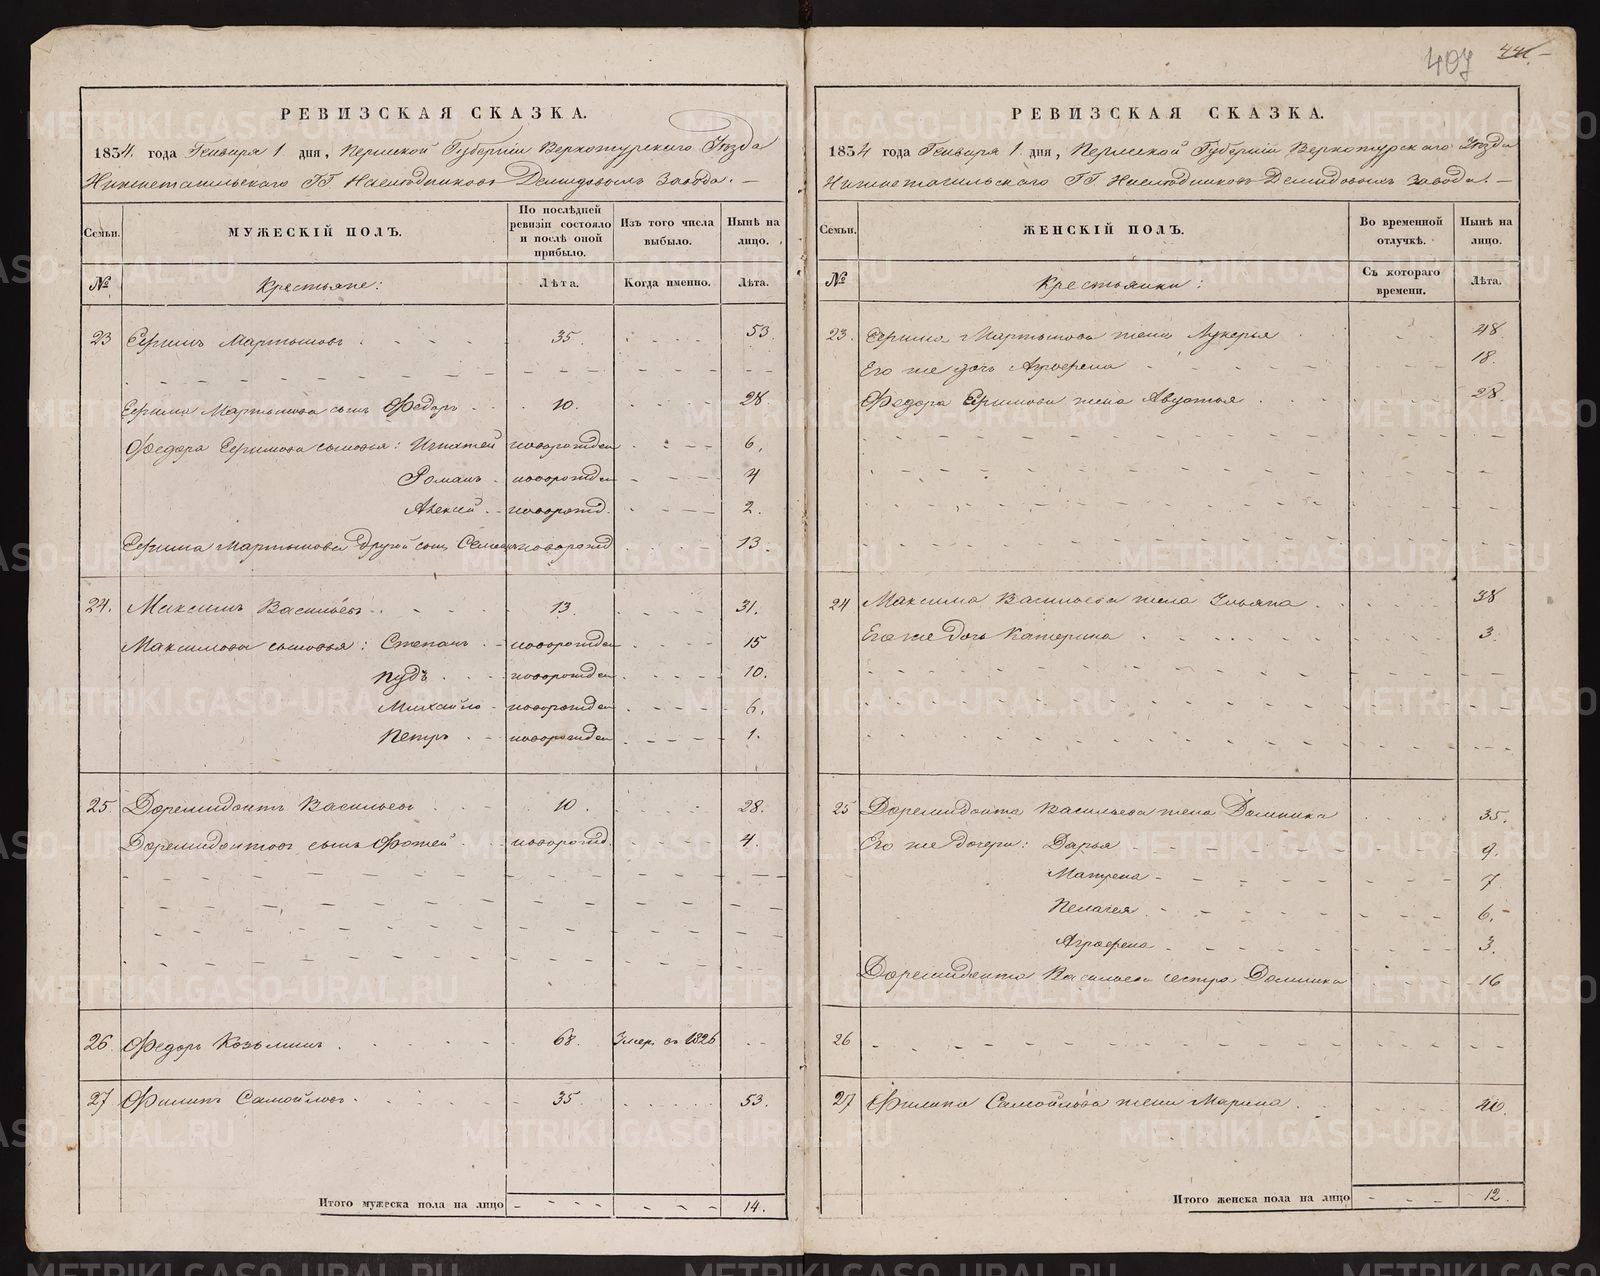 407 441.
РЕВИЗСКАЯ СКАЗКА.
1834. года Генваря 1 дня, Пермской Губерніи Верхотурскаго Уѣзда
Нижнетагильскаго ГГ Наслѣдниковъ Демидовыхъ Завода.
Семьи. МУЖЕСКІЙ ПОЛЪ. По послѣдней ревизіи состояло и послѣ оной прибыло. Изъ того числа выбыло. Нынѣ на лицо.
№ Крестьяне: Лѣта. Когда именно. Лѣта.
23 Ефимъ Мартыновъ 35. 53
Ефима Мартынова сынъ Федоръ 10. 28.
Федора Ефимова сыновья: Игнатей новорожден 6.
Романъ новорожден 4
Алексій новорожд. 2.
Ефима Мартынова другой сынъ Семенъ новорожд 13.
24. Максимъ Васильевъ 13. 31.
Максимова сыновья: Степанъ новорожден 15
Пудъ новорожден 10.
Михайло новорожден 6.
Петръ новорожден 1.
25 Доремидонтъ Васильевъ 10. 28.
Доремидонтовъ сынъ Фотей новорожд. 4.
26 Федоръ Козьминъ 68. Умер. въ 1826
27 Филипъ Самойловъ 35. 53.
Итого мужеска пола на лицо 14.
РЕВИЗСКАЯ СКАЗКА.
1834 года Генваря 1 дня, Пермской Губерніи Верхотурскаго Уѣзда
Нижнетагильскаго ГГ Наслѣдниковъ Демидовыхъ Завода.
Семьи. ЖЕНСКІЙ ПОЛЪ. Во временной отлучкѣ. Нынѣ на лицо.
№ Крестьянки: Съ котораго времени. Лѣта.
23. Ефима Мартынова жена Лукерья 48
Его же дочь Агрофена 18.
Федора Ефимова жена Авдотья 28.
24 Максима Васильева жена Ульяна 38
Его же дочь Катерина 3.
25 Доремидонта Васильева жена Домника 35.
Его же дочери: Дарья 9.
Матрена 7
Пелагея 6.
Агрофена 3.
Доремидонта Васильева сестра Домника 16
26
27 Филипа Самойлова жена Марина
Итого женска пола на лицо 12.
METRIKI.GASO-URAL.RU